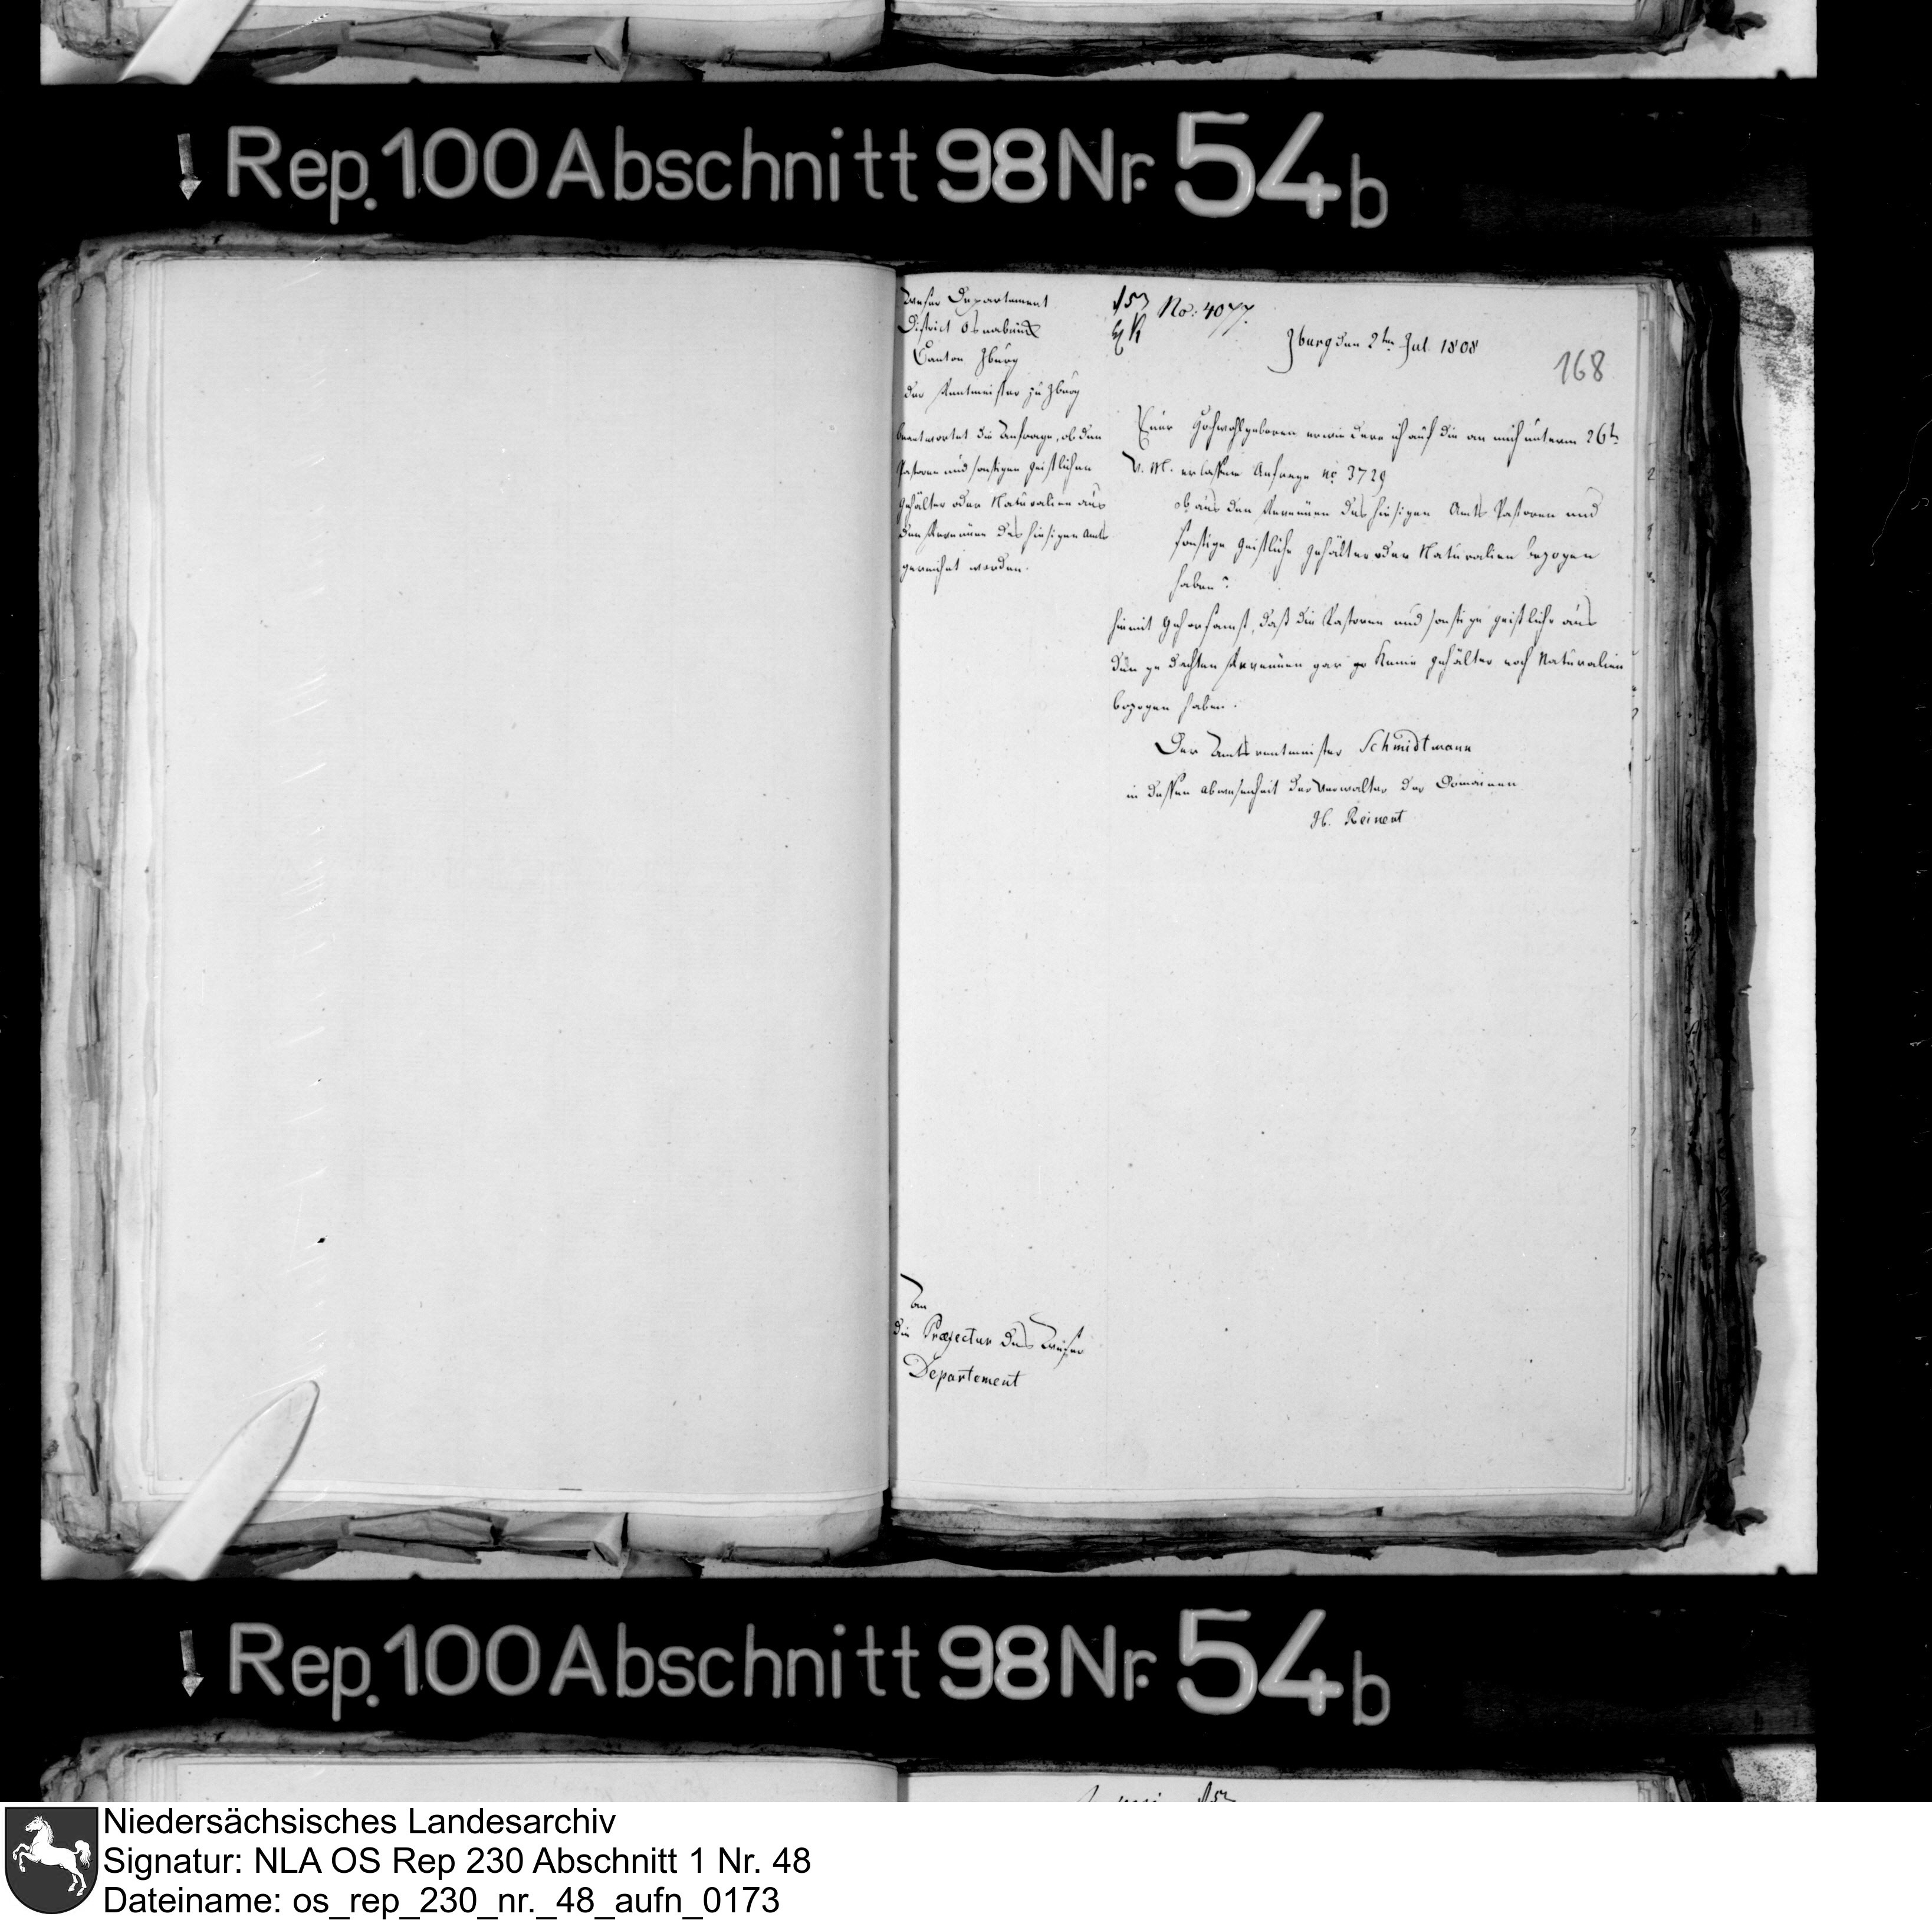 Rep. 100 Abschnitt 98 Nr. 54 b
Weser Departement
District Osnabrück
Canton Iburg
der Rentmeister zu Iburg
beantwortet die Anfrage, ob den
Pastoren und sonstigen Geistlichen
Gehälter oder Naturalien aus
den Revenüen des hiesigen Amts
gereichet worden.
No: 4077.
Iburg den 2ten Jul. 1808
168
Euer Hochwohlgeboren erwiedere ich auf die an mich unterm 26ten
v. M. erlassene Anfrage no 3729
ob aus den Revenüen des hiesigen Amts Pastoren und
sonstige Geistliche Gehälter oder Naturalien bezogen
haben?
hiemit gehorsamst, daß die Pastoren und sonstige Geistliche aus
den gedachten Revenüen gar keine Gehälter noch Naturalien
bezogen haben.
Der Amtsrentmeister Schmidtmann
in dessen Abwesenheit der Verwalter der Domainen
H. Reinert
An
die Præfectur des Weser
Departement
Rep. 100 Abschnitt 98 Nr. 54 b
Niedersächsisches Landesarchiv
Signatur: NLA OS Rep 230 Abschnitt 1 Nr. 48
Dateiname: os_rep_230_nr._48_aufn_0173